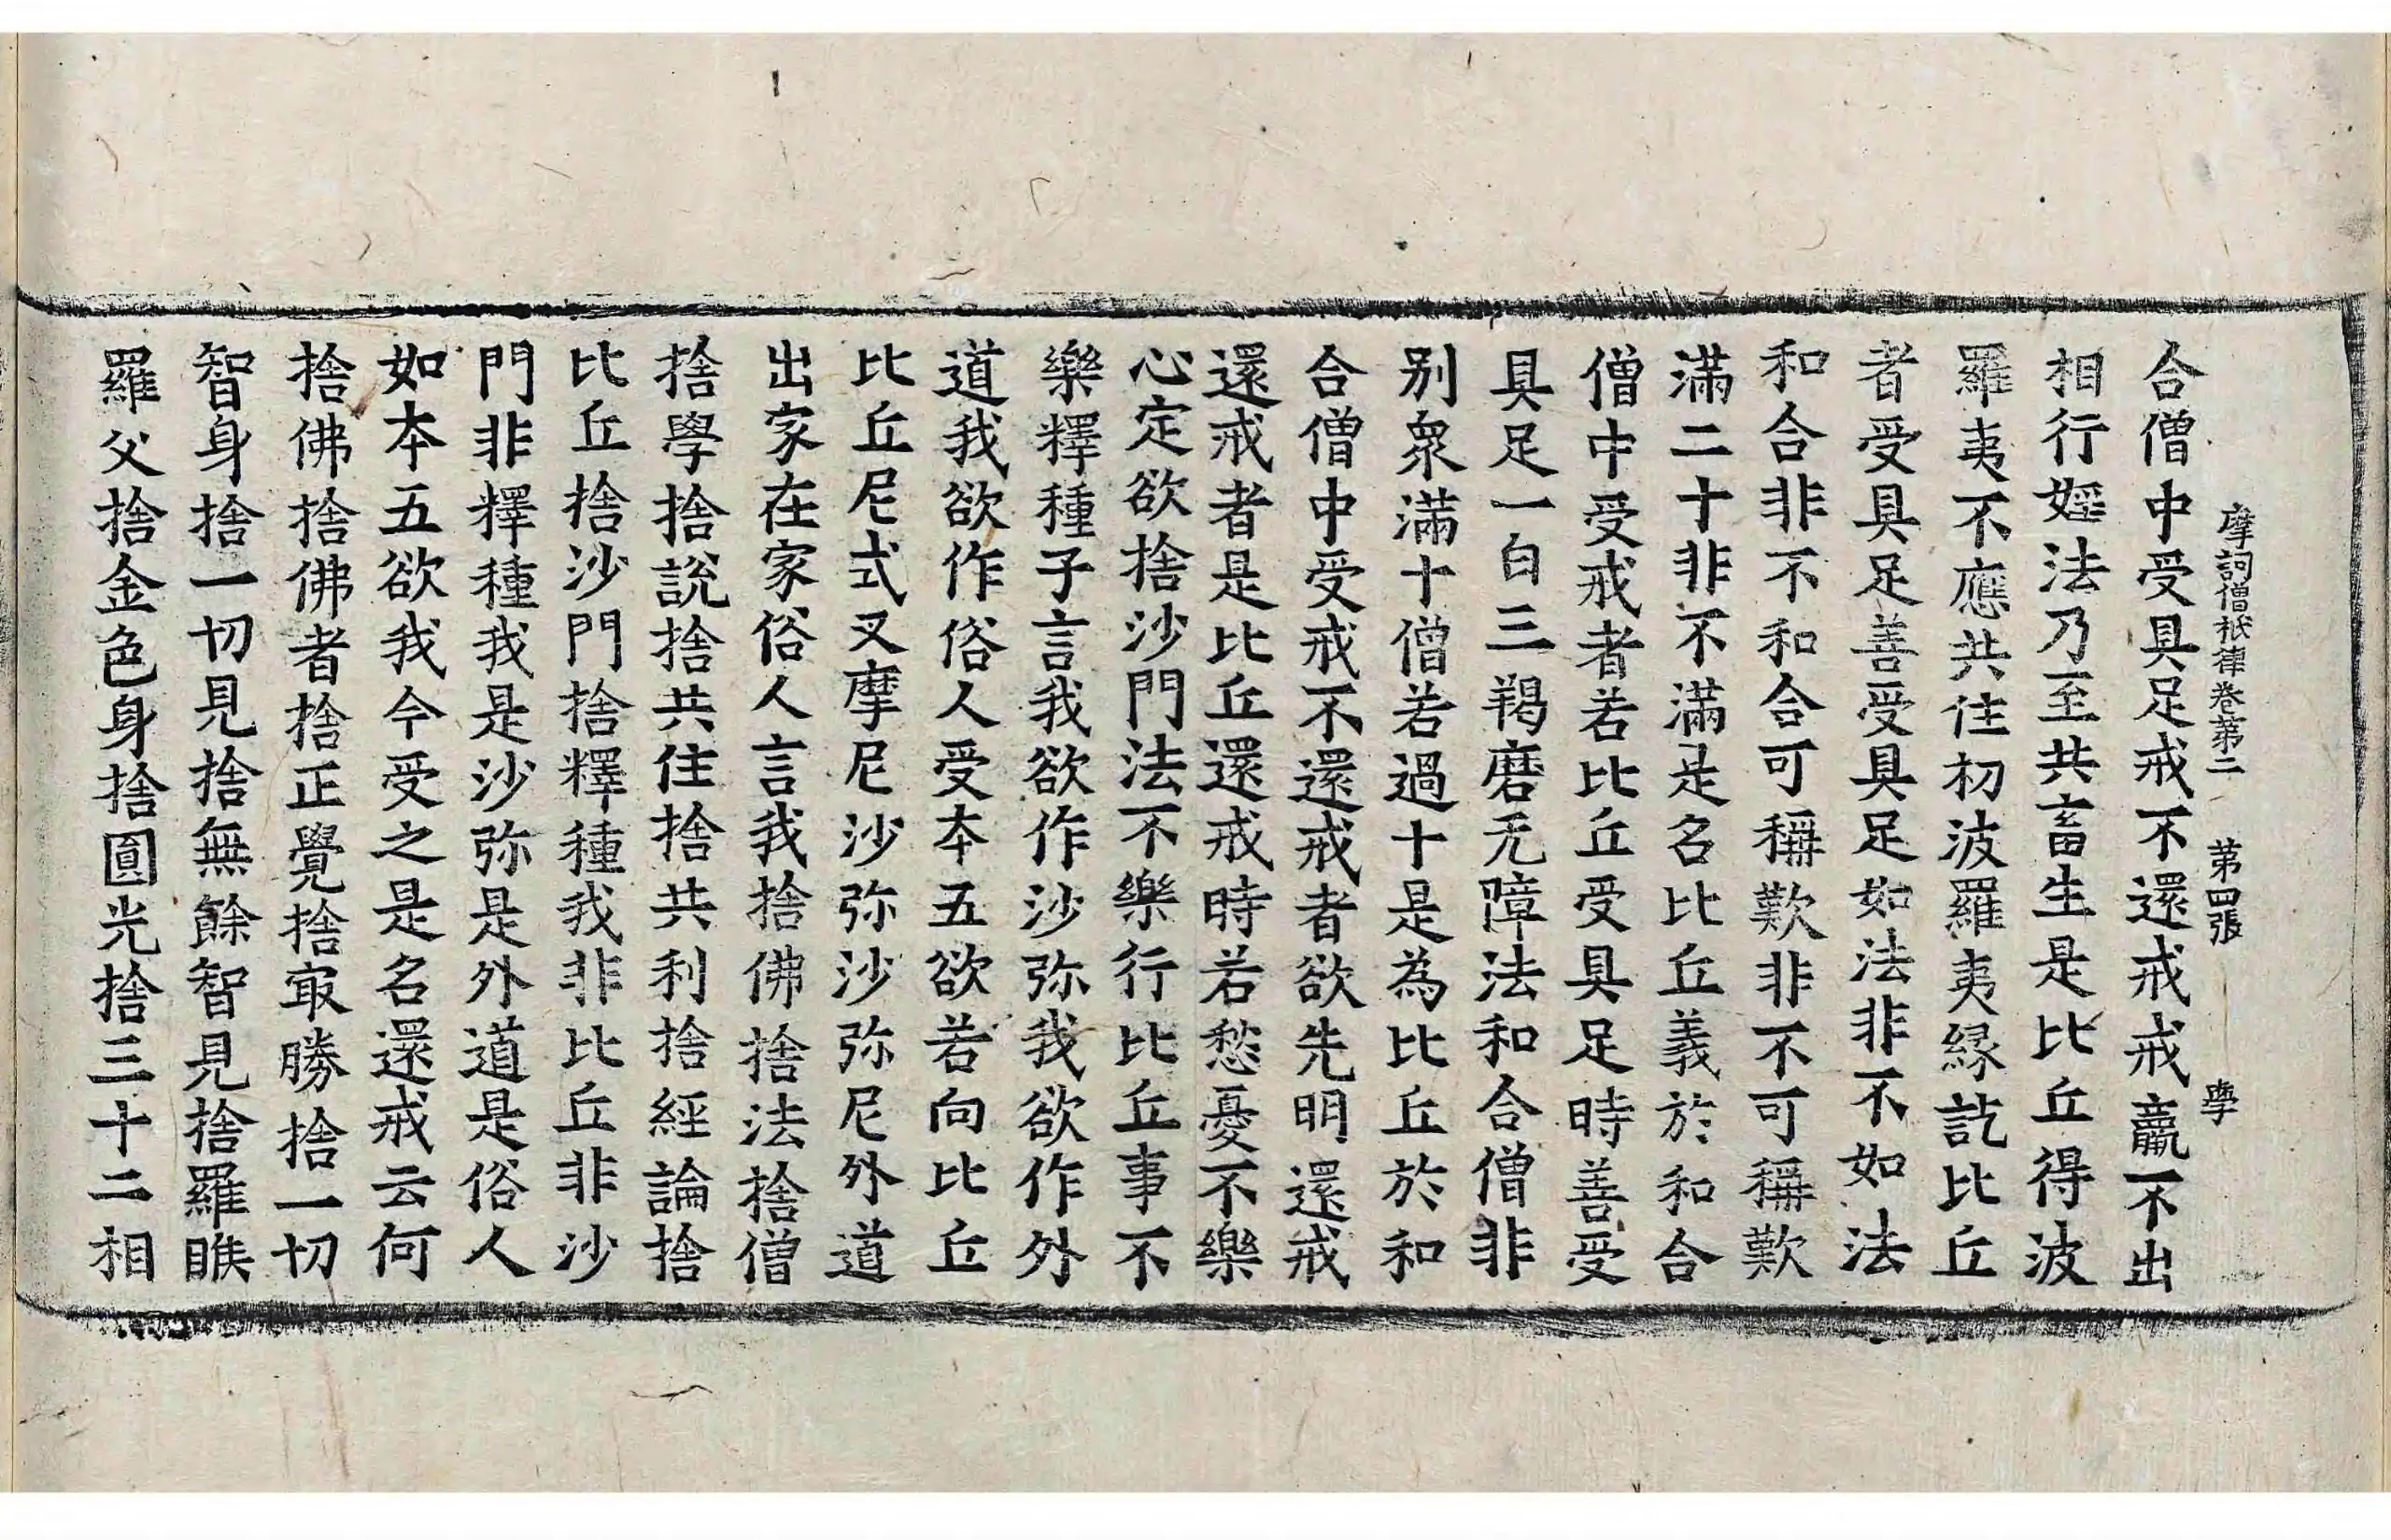 摩訶僧祇律卷第二 第四張 學
合僧中受具足戒不還戒戒羸不出
相行婬法乃至共畜生是比丘得波
羅夷不應共住初波羅夷緣訖比丘
者受具足善受具足如法非不如法
和合非不和合可稱歎非不可稱歎
滿二十非不滿是名比丘義於和合
僧中受戒者若比丘受具足時善受
具足一白三羯磨无障法和合僧非
别衆滿十僧若過十是為比丘於和
合僧中受戒不還戒者欲先明還戒
還戒者是比丘還戒時若愁憂不樂
心定欲捨沙門法不樂行比丘事不
樂釋種子言我欲作沙弥我欲作外
道我欲作俗人受本五欲若向比丘
比丘尼式叉摩尼沙弥沙弥尼外道
出家在家俗人言我捨佛捨法捨僧
捨學捨說捨共住捨共利捨經論捨
比丘捨沙門捨釋種我非比丘非沙
門非釋種我是沙弥是外道是俗人
如本五欲我今受之是名還戒云何
捨佛捨佛者捨正覺捨冣勝捨一切
智身捨一切見捨無餘智見捨羅睺
羅父捨金色身捨圓光捨三十二相